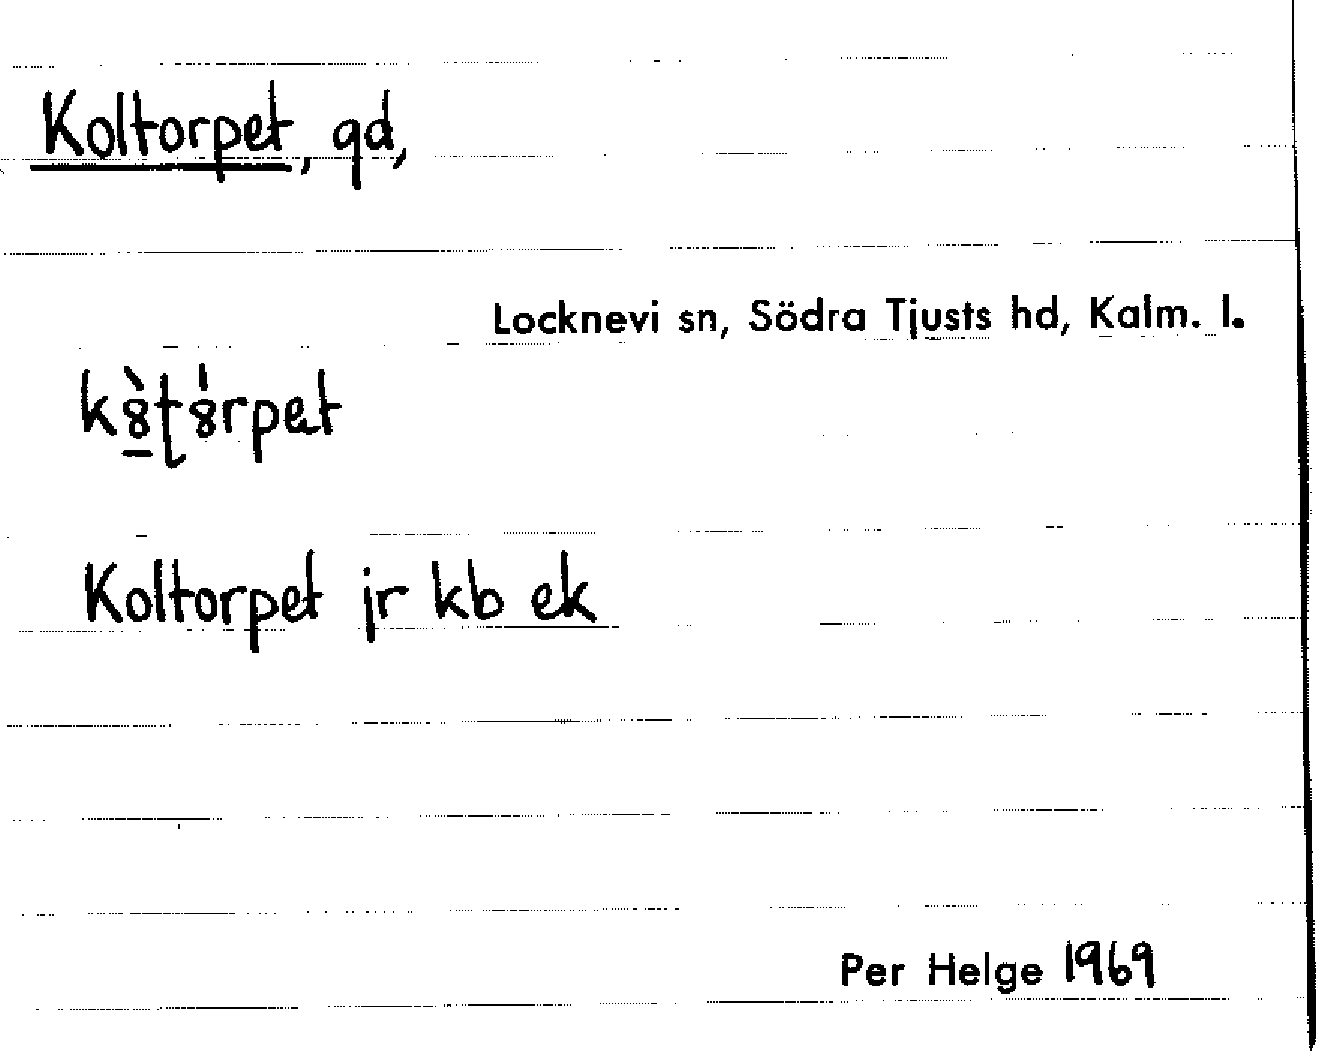 Koltorpet, gd,
Locknevi sn, Södra Tjusts hd, Kalm. l.
k8̲̀ʈ8̍rpət
Koltorpet jr kb ek
Per Helge 1969